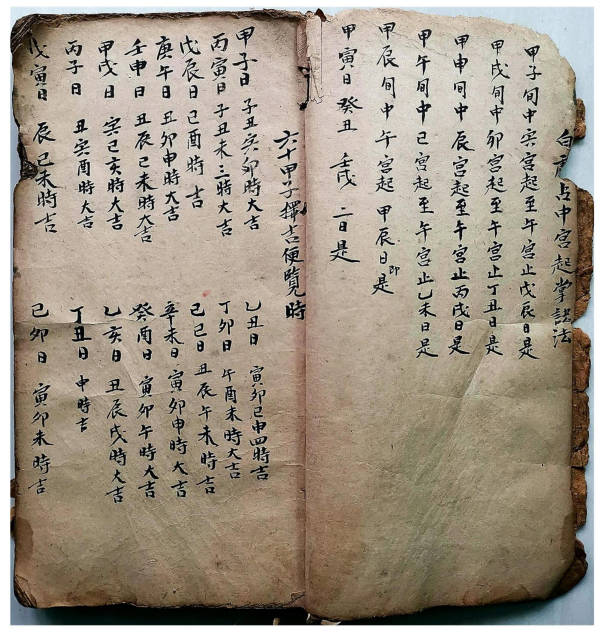 白虎占中宮起掌訣法
甲子旬中寅宮起至午宮止戊辰日是
甲戌旬中卯宮起至午宮止丁丑日是
甲申旬中辰宮起至午宮止丙戌日是
甲午旬中巳宮起至午宮止乙未日是
甲辰旬中午宮起甲辰日即是
甲寅日癸丑壬戌二日是
六十甲子擇吉便覽時
甲子日 子丑寅卯時大吉 乙丑日 寅卯巳申四時吉
丙寅日 子丑未三時大吉 丁卯日 午酉未時大吉
戊辰日 巳酉時吉 己巳日 丑辰午未時吉
庚午日 丑卯申時大吉 辛未日 寅卯申時大吉
壬申日 丑辰巳未時大吉 癸酉日 寅卯午時大吉
甲戌日 寅巳亥時大吉 乙亥日 丑辰戌時大吉
丙子日 丑寅酉時大吉 丁丑日 申時吉
戊寅日 辰巳未時吉 己卯日 寅卯未時吉